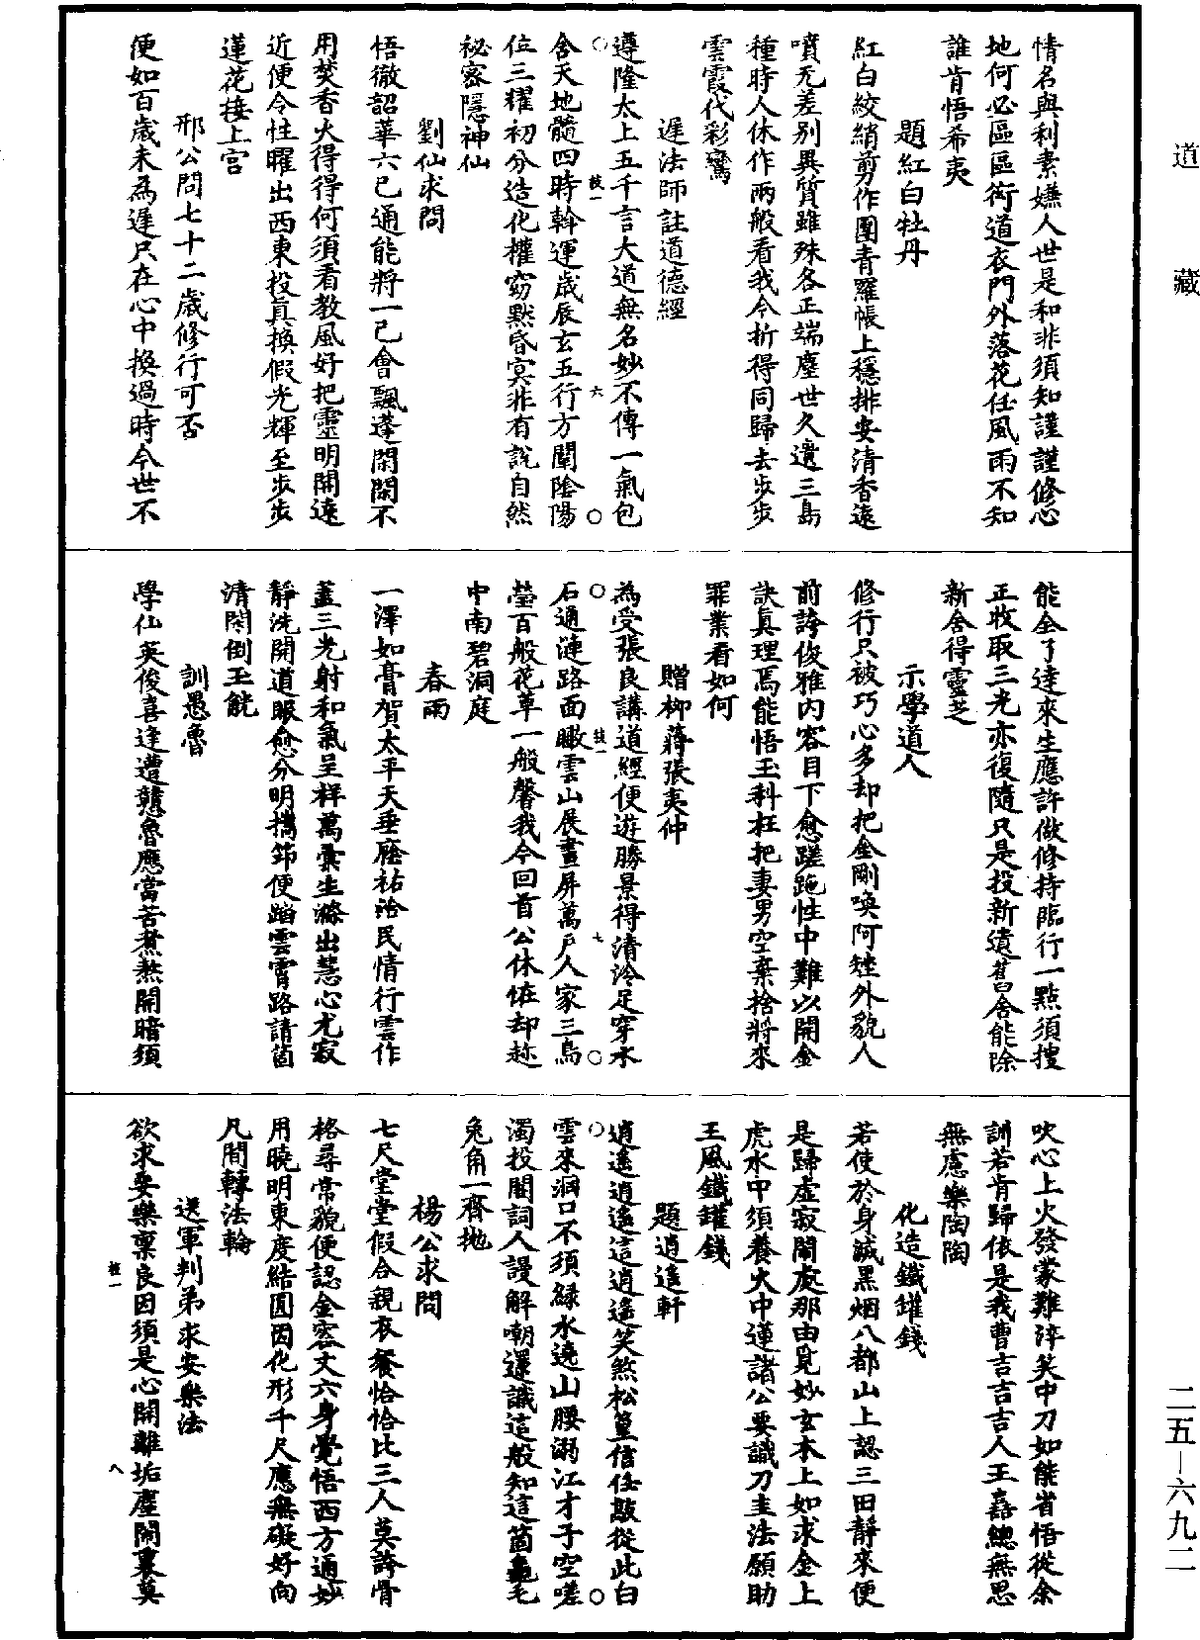 道藏
情名與利素嫌人世是和非須知謹謹修心
地何必區區衒道衣門外落花任風雨不知
誰肯悟希夷
題紅白牡丹
紅白絞綃剪作團青羅帳上穩排安清香遠
噴无差別異質雖殊各正端塵世久遺三島
種時人休作兩般看我今折得同歸去步步
雲霞代彩鸞
遲法師註道德經
遵隆太上五千言大道無名妙不傳一氣包
含天地髓四時斡運歲辰玄五行方闡陰陽
位三耀初分造化權窈默昏冥非有說自然
秘密隱神仙
劉仙求問
悟徹韶華六已通能將一己會飄蓬閑閑不
用焚香火得得何須看教風好把靈明開遠
近便令性曜出西東投真換假光輝至步步
蓮花接上宮
邢公問七十二歲修行可否
便如百歲未為遲只在心中換過時今世不
能全了達來生應許做修持臨行一點須搜
正收取三光亦復隨只是投新遺舊舍能除
新舍得靈芝
示學道人
修行只被巧心多却把金剛喚阿矬外貌人
前誇俊雅內容目下愈蹉跎性中難以開金
訣真理焉能悟玉科枉把妻男空棄捨將來
罪業看如何
贈柳蒔張夷仲
為受張良講道經便遊勝景得清泠足穿水
石通漣路面瞰雲山展畫屏萬戶人家三島
瑩百般花草一般馨我今回首公休恠却趂
中南碧洞庭
春雨
一澤如膏賀太平天垂廕祐洽民情行雲作
蓋三光射和氣呈祥萬彙生滌出慧心尤寂
靜洗開道眼愈分明攜筇便踏雲霄路請箇
清閑倒玉觥
訓愚魯
學仙英俊喜逢遭戇魯應當苦煮熬開暗須
吹心上火發蒙難淬笑中刀如能省悟從余
訓若肯歸依是我曹吉吉吉人王嚞總無思
無慮樂陶陶
化造鐵罐錢
若使於身減黑烟八都山上認三田靜來便
是歸虛寂閙處那由覓妙玄木上如求金上
虎水中須養火中蓮諸公要識刀圭法願助
王風鐵罐錢
題逍遙軒
逍遙逍遙這逍遙笑煞松篁信任敲從此白
雲來洞口不須綠水遶山腰溯江才子空嗟
濁投閣詞人謾解嘲還識這般知這箇龜毛
兔角一齊拋
楊公求問
七尺堂堂假合親衣餐恰恰比三人莫誇骨
格尋常貌便認金容丈六身覺悟西方通妙
用曉明東度結圓因化形千尺應無礙好向
凡間轉法輪
送軍判弟求安樂法
欲求安樂稟良因須是心開離垢塵閙裏莫
二五－六九二